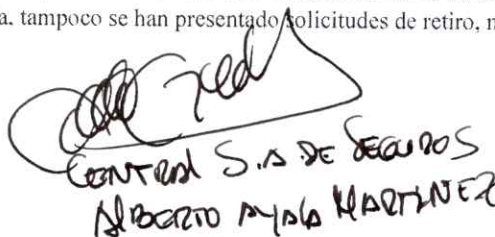 a. tampoco se han presentado solicitudes de retiro, n
CENTRAL S.A DE SEGUROS
ALBERTO AYALA MARTINEZ